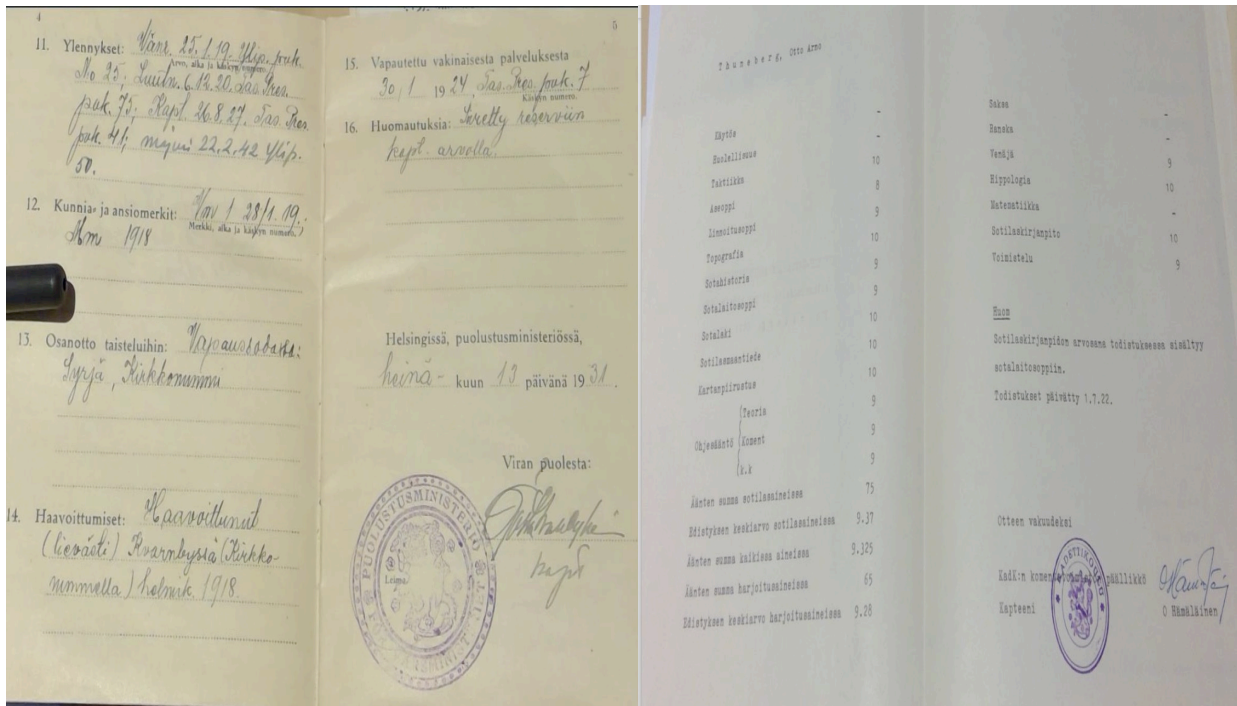 4
11. Ylennykset: Vänr. 25.1.19. Ylip. pvk.
Arvo, aika ja käskyn numero.
No 25; Luutn. 6.12.20. Tas. Pres.
pvk. 75; Kapt. 26.8.27. Tas. Pres.
pvk. 41; 22.2.42 Ylip.
50.
12. Kunnia- ja ansiomerkit: 28/1.19.;
Merkki, aika ja käskyn numero.
1918
13. Osanotto taisteluihin: Vapaussodassa:
Syrjä, Kirkkonummi
14. Haavoittumiset: Haavoittunut
(lievästi) Kvarnbyssä (Kirkko-
nummella) helmik. 1918.
5
15. Vapautettu vakinaisesta palveluksesta
30/1 1924. Tas. Pres. pvk. 7
Käskyn numero.
16. Huomautuksia: Siretty reserviin
kapt. arvolla.
Helsingissä, puolustusministeriössä,
heinä- kuun 13 päivänä 1931.
Viran puolesta:
kapt
Leima
PUOLUSTUSMINISTERIÖ
Thuneberg, Otto Arno
Käytös -
Huolellisuus -
Taktiikka 10
Aseoppi 8
Linnoitusoppi 9
Topografia 10
Sotahistoria 9
Sotalaitosoppi 9
Sotalaki 10
Sotilasmaantiede 10
Kartanpiirustus 10
Ohjesääntö
Teoria 9
Koment 9
k.k 9
Äänten summa sotilasaineissa 75
Edistyksen keskiarvo sotilasaineissa 9.37
Äänten summa kaikissa aineissa 9.325
Äänten summa harjoitusaineissa 65
Edistyksen keskiarvo harjoitusaineissa 9.28
Saksa -
Ranska -
Venäjä 9
Hippologia 10
Matematiikka -
Sotilaskirjanpito 10
Voimistelu 9
Huom
Sotilaskirjanpidon arvosana todistuksessa sisältyy
sotalaitosoppiin.
Todistukset päivätty 1.7.22.
Otteen vakuudeksi
KadK:n päällikkö
Kapteeni O Hämäläinen
KADETTIKOULU